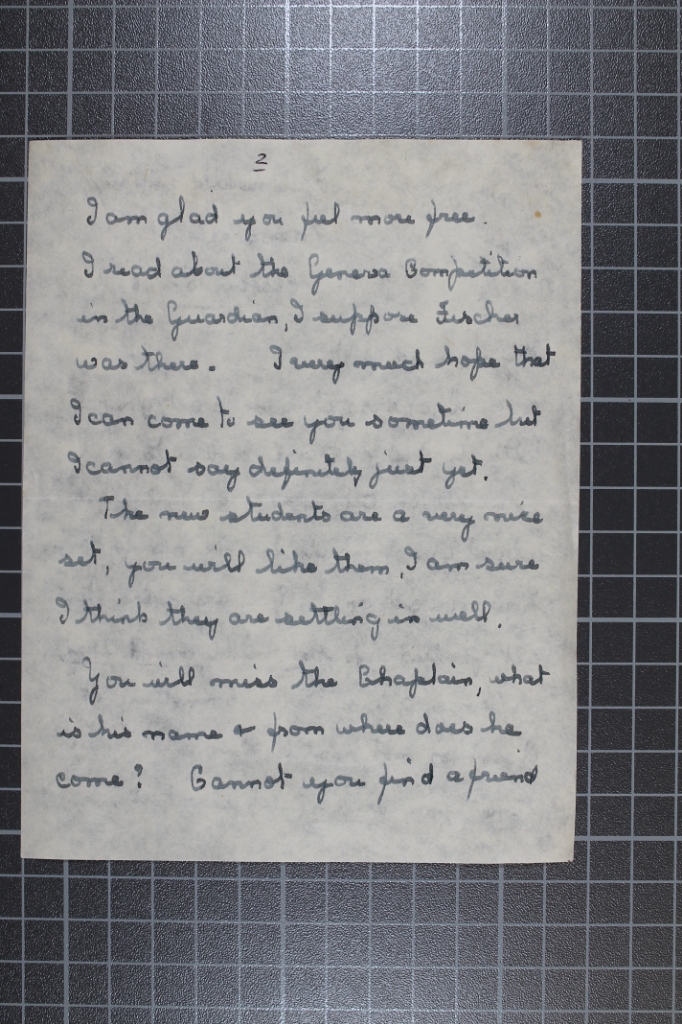 2
I am glad you feel more free.
I read about the Geneva Competition
in the Guardian, I suppose Fischer
was there. I very much hope that
I can come to see you sometime but
I cannot say definitely just yet.
The new students are a very nice
set, you will like them, I am sure
I think they are settling in well.
You will miss the Chaplain, what
is his name & from where does he
come? Cannot you find a friend